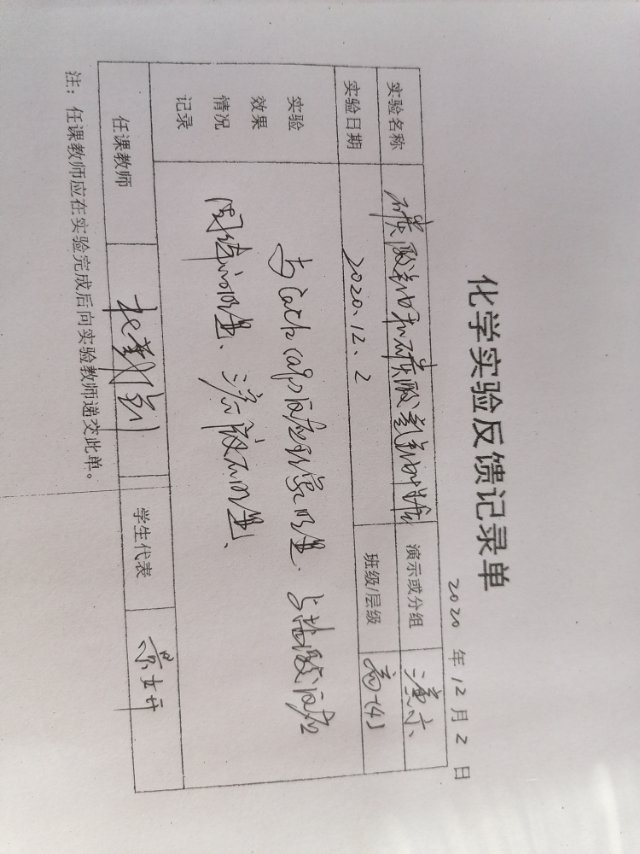 化学实验反馈记录单
2020 年 12 月 2 日
实验名称 碳酸钠和碳酸氢钠性质 演示或分组 演示
实验日期 2020.12.2 班级/层级 高一(4)
实验
效果
情况
记录
与CaCl2 (aq)反应现象明显. 与盐酸反应
固体的明显、溶液不明显、
任课教师 学生代表
注：任课教师应在实验完成后向实验教师递交此单。